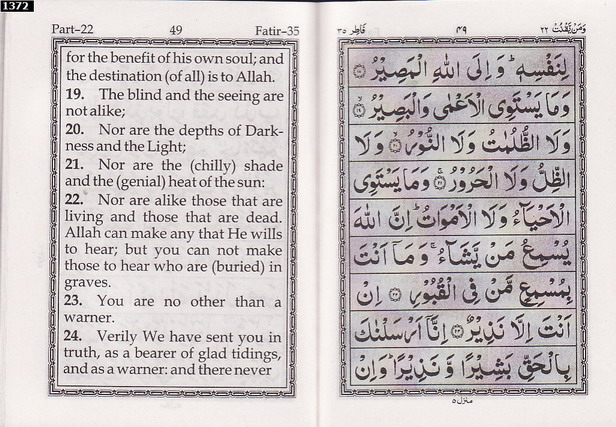 1372
Part-22 49 Fatir-35
for the benefit of his own soul; and
the destination (of all) is to Allah.
19. The blind and the seeing are
not alike;
20. Nor are the depths of Dark-
ness and the Light;
21. Nor are the (chilly) shade
and the (genial) heat of the sun:
22. Nor are alike those that are
living and those that are dead.
Allah can make any that He wills
to hear; but you can not make
those to hear who are (buried) in
graves.
23. You are no other than a
warner.
24. Verily We have sent you in
truth, as a bearer of glad tidings,
and as a warner: and there never
وَمَنْ يَّقْنُتْ ٢٢ ٤٩ فَاطِر ٣٥
لِنَفْسِهٖ ؕ وَ اِلَى اللّٰهِ الْمَصِيْرُ ۝١٨
وَمَا يَسْتَوِى الْاَعْمٰى وَالْبَصِيْرُ ۝١٩
وَلَا الظُّلُمٰتُ وَلَا النُّوْرُ ۝٢٠ وَلَا
الظِّلُّ وَلَا الْحَرُوْرُ ۝٢١ وَمَا يَسْتَوِى
الْاَحْيَآءُ وَلَا الْاَمْوَاتُ ؕ اِنَّ اللّٰهَ
يُسْمِعُ مَنْ يَّشَآءُ ۚ وَمَاۤ اَنْتَ
بِمُسْمِعٍ مَّنْ فِى الْقُبُوْرِ ۝٢٢ اِنْ
اَنْتَ اِلَّا نَذِيْرٌ ۝٢٣ اِنَّاۤ اَرْسَلْنٰكَ
بِالْحَقِّ بَشِيْرًا وَّنَذِيْرًا ؕ وَاِنْ
منزل ٥